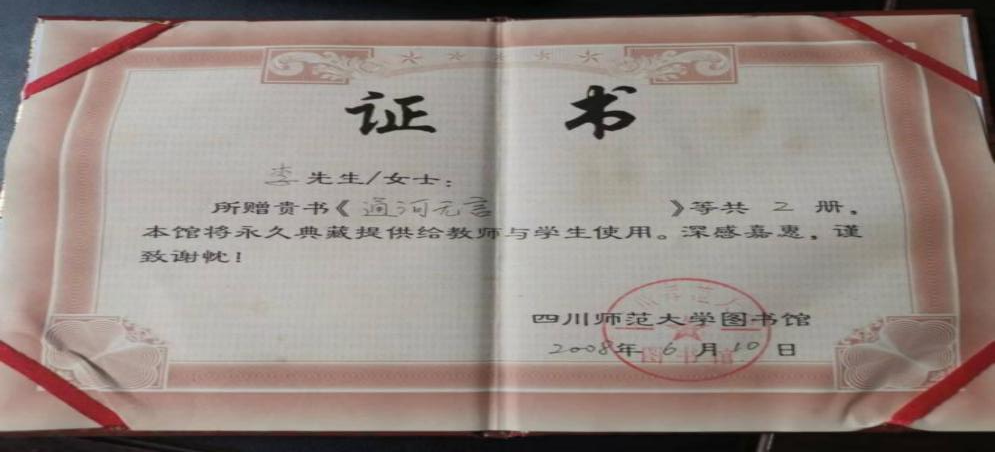 证书
李先生/女士：
所赠贵书《通河无言》等共2册，
本馆将永久典藏提供给教师与学生使用。深感嘉惠，谨
致谢忱！
四川师范大学图书馆
2008年6月10日